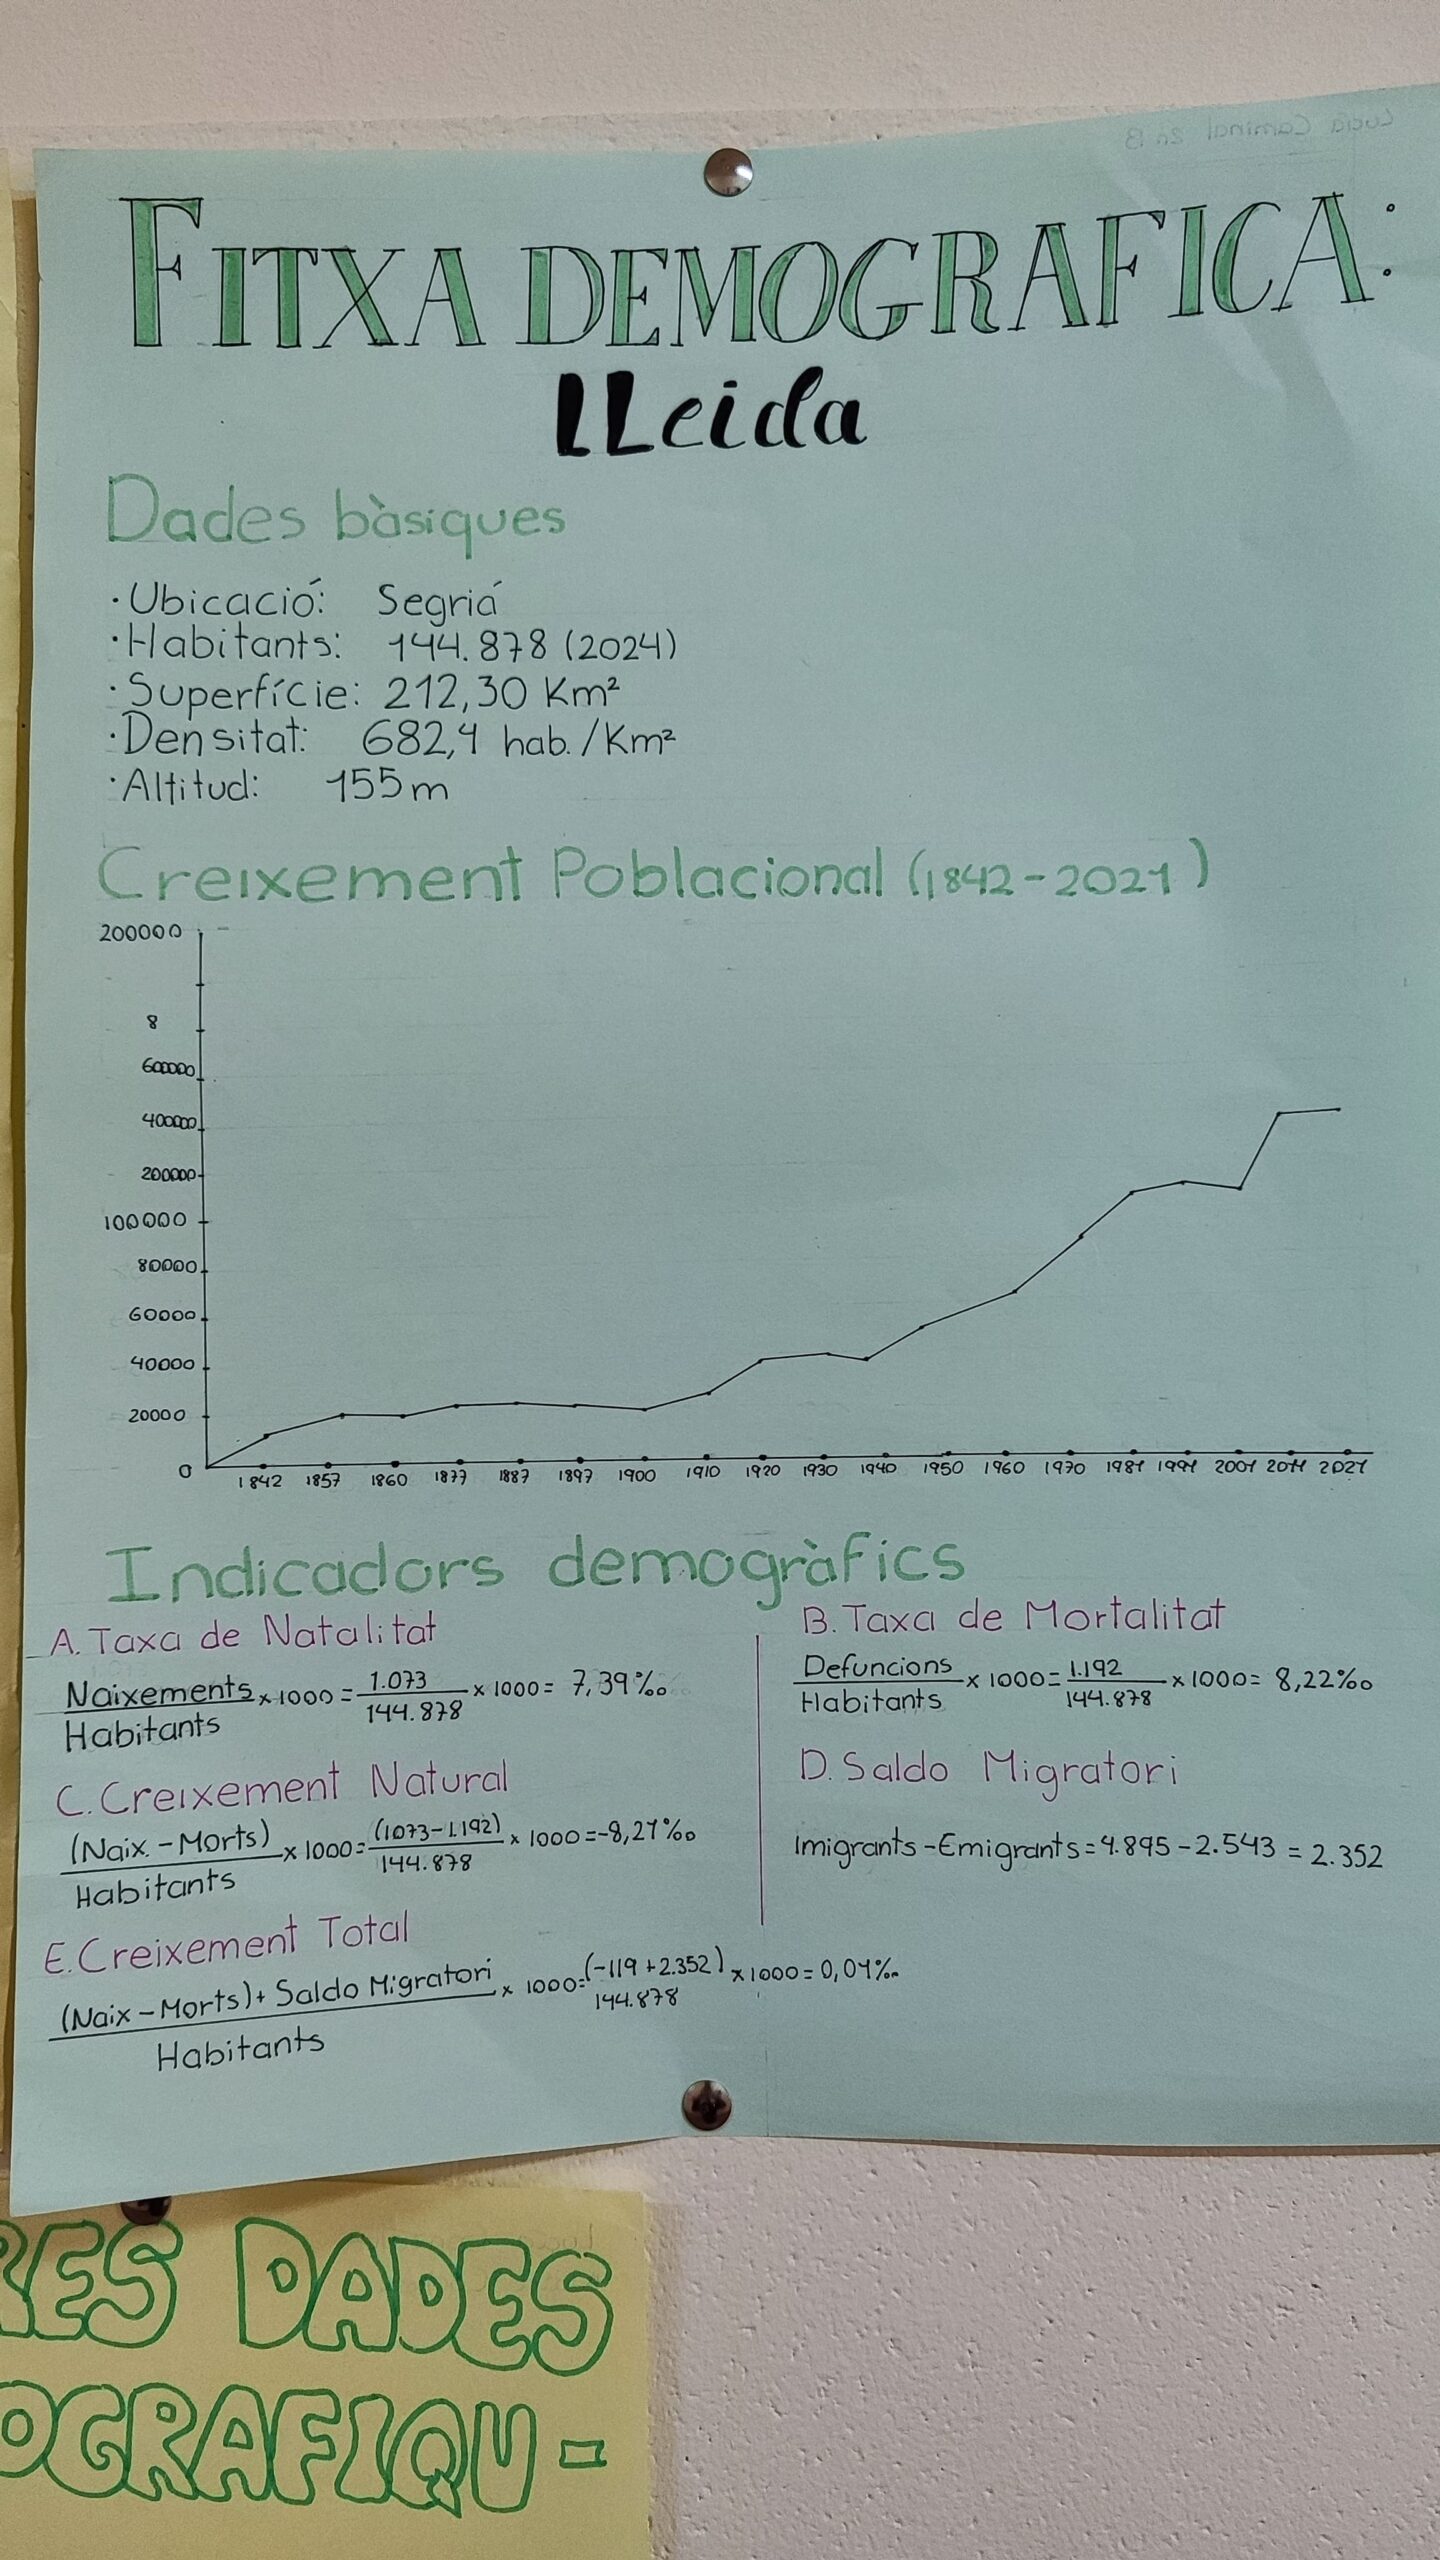 FITXA DEMOGRAFICA:
LLeida
Dades bàsiques
·Ubicació: Segriá
·Habitants: 144.878 (2024)
·Superfície: 212,30 Km²
·Densitat: 682,4 hab./Km²
·Altitud: 155m
Creixement Poblacional (1842-2021)
200000
8
600000
400000
200000
100000
80000
60000
40000
20000
0
1842 1857 1860 1877 1887 1897 1900 1910 1920 1930 1940 1950 1960 1970 1981 1991 2001 2011 2021
Indicadors demogràfics
A. Taxa de Natalitat
Naixements x 1000 = 1.073 x 1000 = 7,39‰
Habitants 144.878
B. Taxa de Mortalitat
Defuncions x 1000 = 1.192 x 1000 = 8,22‰
Habitants 144.878
C. Creixement Natural
(Naix. - Morts) x 1000 = (1073-1.192) x 1000 = -8,21‰
Habitants 144.878
D. Saldo Migratori
Imigrants - Emigrants = 4.895 - 2.543 = 2.352
E. Creixement Total
(Naix - Morts) + Saldo Migratori x 1000 = (-119 + 2.352) x 1000 = 0,01‰
Habitants 144.878
RES DADES
OGRAFIQU-